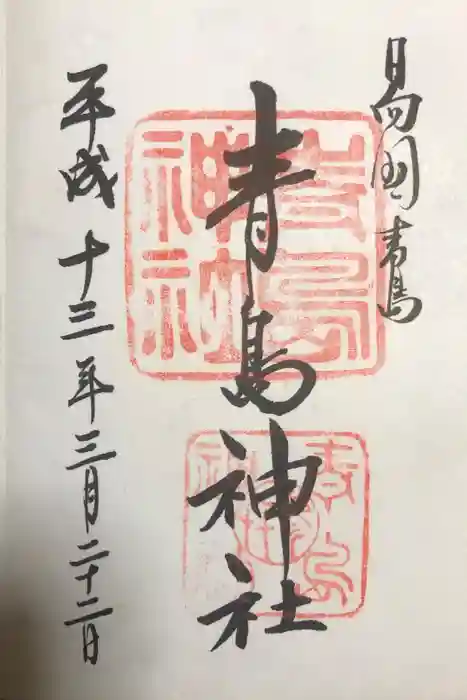 日向国青島
青島神社
平成十三年三月二十二日
青島
神社